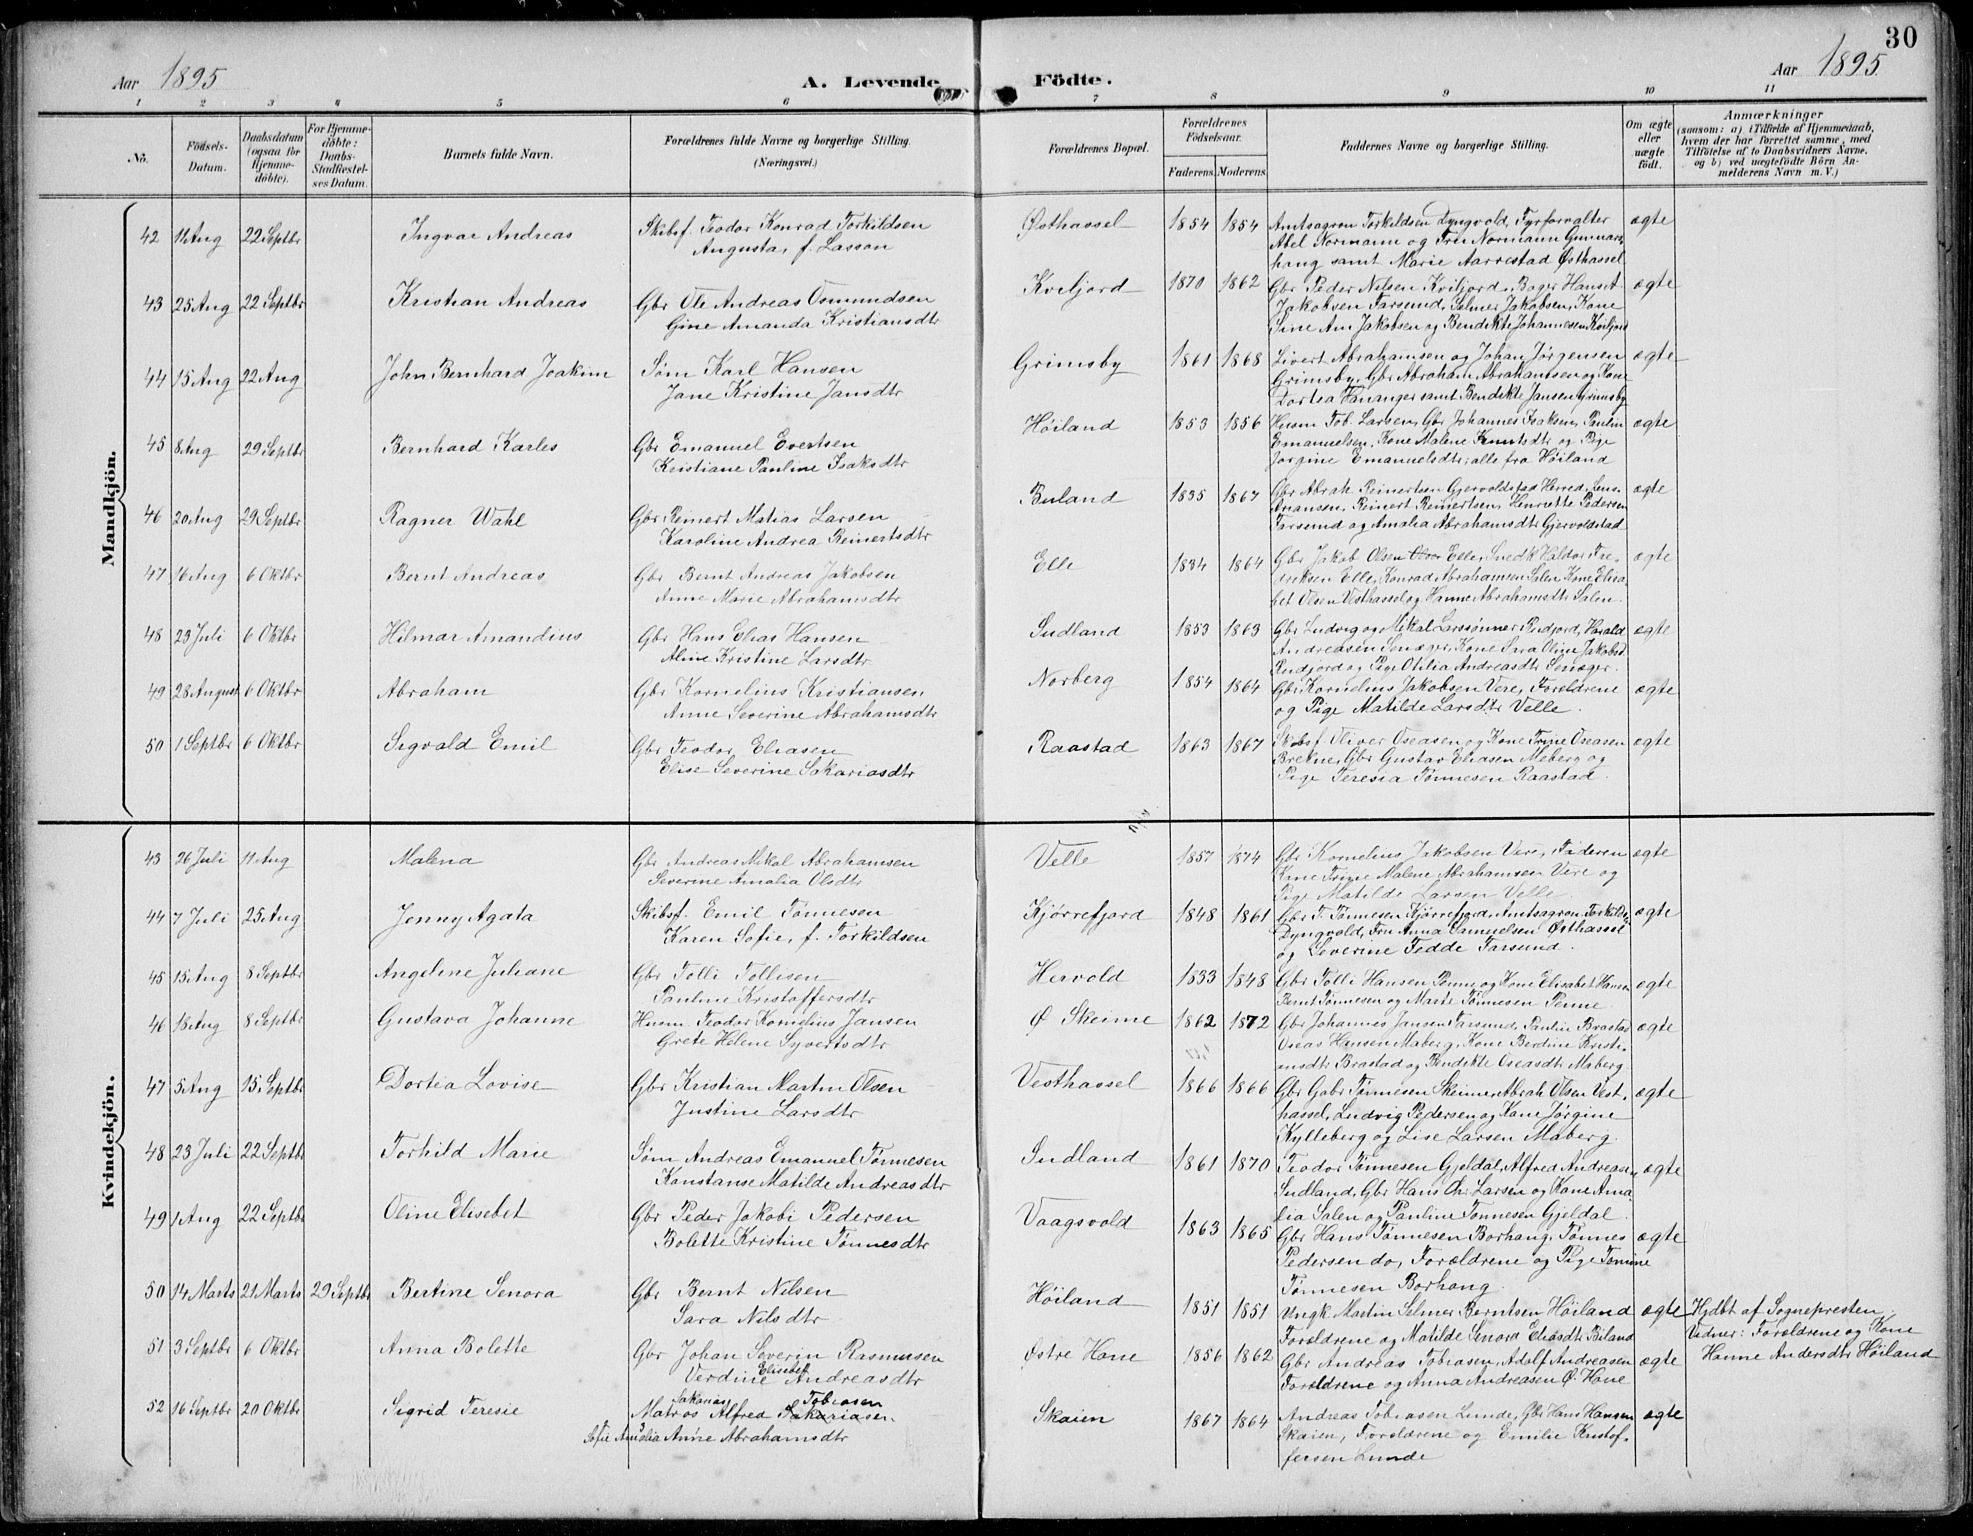 30
Aar 1895
A. Levende
Födte.
Aar 1895
1 2 3 4 5 6 7 8 9 10 11
No.
Födsels-Datum.
Daabsdatum (ogsaa for Hjemmedöbte).
For Hjemmedöbte: Daabs-Stadfæstelses Datum.
Barnets fulde Navn.
Forældrenes fulde Navne og borgerlige Stilling. (Næringsvei.)
Forældrenes Bopæl.
Forældrenes Födselsaar.
Faderens. Moderens.
Faddernes Navne og borgerlige Stilling.
Om ægte eller uægte födt.
Anmærkninger
(saasom: a) i Tilfælde af Hjemmedaab, hvem der har forrettet samme, med Tilföielse af to Daabsvidners Navne, og b) ved uægtefödte Börn Anmelderens Navn m. V.)
Mandkjön.
42 11 Aug 22 Septbr Ingvar Andreas Skibsf. Teodor Konrad Torkildsen Østhassel 1854 1854 Amtsagron Torkildsen Dyngvold, Fyrforvalter ægte
Augusta, f. Larson Abel Normann og Fru Normann Gunnars
haug samt Marie Aarrestad Østhassel
43 25 Aug 22 Septbr Kristian Andreas Gbr Ole Andreas Osmundsen Kviljord 1870 1862 Gbr Peder Nilsen Kviljord, Bager Hans A ægte
Gine Amanda Kristiansdtr Jakobsen Farsund, Selmer Jakobsen, Kone
Sine Am Jakobsen og Bendikte Johannesen Kviljord
44 15 Aug 22 Aug John Bernhard Joakim Søm Karl Hansen Grimsby 1861 1868 Sivert Abrahamsen og Johan Jørgensen ægte
Jane Kristine Jansdtr Grimsby, Gbr Abraham Abrahamsen og Kone
Dortea Hananger samt Bendikte Jansen Grimsby
45 8 Aug 29 Septbr Bernhard Karles Gbr Emanuel Evertsen Høiland 1853 1856 Husm Tob. Larsen, Gbr Johannes Isaksen, Paulin ægte
Kristiane Pauline Isaksdtr Emanuelsen, Kone Malene Knutsdtr og Pige
Jørgine Emanuelsdtr; alle fra Høiland
46 20 Aug 29 Septbr Ragner Wahl Gbr Reinert Matias Larsen Buland 1835 1867 Gbr Abrah Reinertsen Gjervoldstad Herred, Jens ægte
Karoline Andrea Reinertsdtr Anansen, Reinert Reinertsen, Henriette Pedersen
Farsund og Amalia Abrahamsdtr Gjervoldstad
47 16 Aug 6 Oktbr Bernt Andreas Gbr Bernt Andreas Jakobsen Elle 1834 1864 Gbr Jakob Olsen Elle, Snedk Haldor Fre- ægte
Anne Marie Abrahamsdtr driksen Elle, Konrad Abrahamsen Salen Kone Elisa
bet Olsen Vesthassel og Hanne Abrahamsdtr Salen.
48 23 Juli 6 Oktbr Hilmar Amandius Gbr Hans Elias Hansen Sudland 1853 1863 Gbr Ludvig og Mikal Larssønner Rudjord, Harald ægte
Aline Kristine Larsdtr Andreasen Senæger, Kone Sara Oline Jakobsd
Rudjord og Pige Otilia Andreasdtr Senæger.
49 28 August 6 Oktbr Abraham Gbr Kornelius Kristiansen Norberg 1854 1864 Gbr Kornelius Jakobsen Vere, Forældrene ægte
Anne Severine Abrahamsdtr og Pige Matilde Larsdtr Velle.
50 1 Septbr 6 Oktbr Sigvald Emil Gbr Teodor Eliasen Raastad 1863 1867 Skibsf. Oliver Oseasen og Kone Trine Oseasen ægte
Elise Severine Sakariasdtr Brekne, Gbr Gustav Eliasen Meberg og
Pige Teresia Tønnesen Raastad.
Kvindekjön.
43 26 Juli 11 Aug Malena Gbr Andreas Mikal Abrahamsen Velle 1857 1874 Gbr Kornelius Jakobsen Vere, Faderen ægte
Severine Amalia Olsdtr Kone Trine Malene Abrahamsen Vere og
Pige Matilde Larsen Velle
44 7 Juli 25 Aug Jenny Agata Skibsf. Emil Tønnesen Kjørrefjord 1848 1861 Gbr T. Tønnesen Kjørrefjord, Amtsagron Torkilds ægte
Karen Sofie, f. Torkildsen Dyngvold, Fru Anna Samuelsen Østhassel
og Severine Tedde Farsund.
45 15 Aug 8 Septbr Angeline Juliane Gbr Tolli Tollisen Hervold 1833 1848 Gbr Tolli Hansen Penne og Kone Elisabet Hansen ægte
Pauline Kristoffersdtr Bernt Tønnesen og Marte Tønnesen Penne
46 18 Aug 8 Septbr Gustava Johanne Husm Teodor Kornelius Jansen Ø Skeime 1862 1872 Gbr Johannes Jansen Farsund, Paulin Brastad ægte
Grete Helene Syvertsdtr Oseas Hansen Maberg, Kone Berdine Kristi-
ansdtr Brastad og Bendikte Oseasdtr Maberg
47 5 Aug 15 Septbr Dortea Lovise Gbr Kristian Martin Olsen Vesthassel 1866 1866 Gbr Gabr Tønnesen Skeime, Abrah Olsen Vest- ægte
Justine Larsdtr hassel, Ludvig Pedersen og Kone Jørgine
Kylleberg og Lise Larsen Maberg.
48 23 Juli 22 Septbr Torhild Marie Søm Andreas Emanuel Tønnesen Sudland 1861 1870 Teodor Tønnesen Gjeldal, Alfred Andreasen ægte
Konstanse Matilde Andreasdtr Sudland, Gbr Hans Chr Larsen og Kone Ama
lia Salen og Pauline Tønnesen Gjeldal.
49 1 Aug 22 Septbr Oline Elisebet Gbr Peder Jakobi Pedersen Vaagsvold 1863 1865 Gbr Hans Tønnesen Borhaug, Tønnes ægte
Bolette Kristine Tønnesdtr Pedersen do, Forældrene og Pige Tomine
Tønnesen Borhaug.
50 14 Marts 21 Marts 29 Septbr Bertine Senora Gbr Bernt Nilsen Høiland 1851 1851 Ungk Martin Selmer Berntsen Høiland ægte Hjdbt af Sognepresten.
Sara Nilsdtr Forældrene og Matilde Senora Eliasdtr Biland Vidner: Forældrene og Kone
Hanne Andersdtr Høiland
51 3 Septbr 6 Oktbr Anna Bolette Gbr Johan Severin Rasmusen Østre Hone 1856 1862 Gbr Andreas Tobiasen, Adolf Andreasen ægte
Verdine Elisebet Andreasdtr Forældrene og Anna Andreasen Ø. Hone
52 16 Septbr 20 Oktbr Sigrid Teresie Matros Alfred Sakarias Tobiasen Sakariasen Skaien 1867 1864 Andreas Tobiasen Lunde, Gbr Hans Hansen ægte
Sofie Amalia Anne Abrahamsdtr Skaien, Forældrene og Emilie Kristof-
fersen Lunde